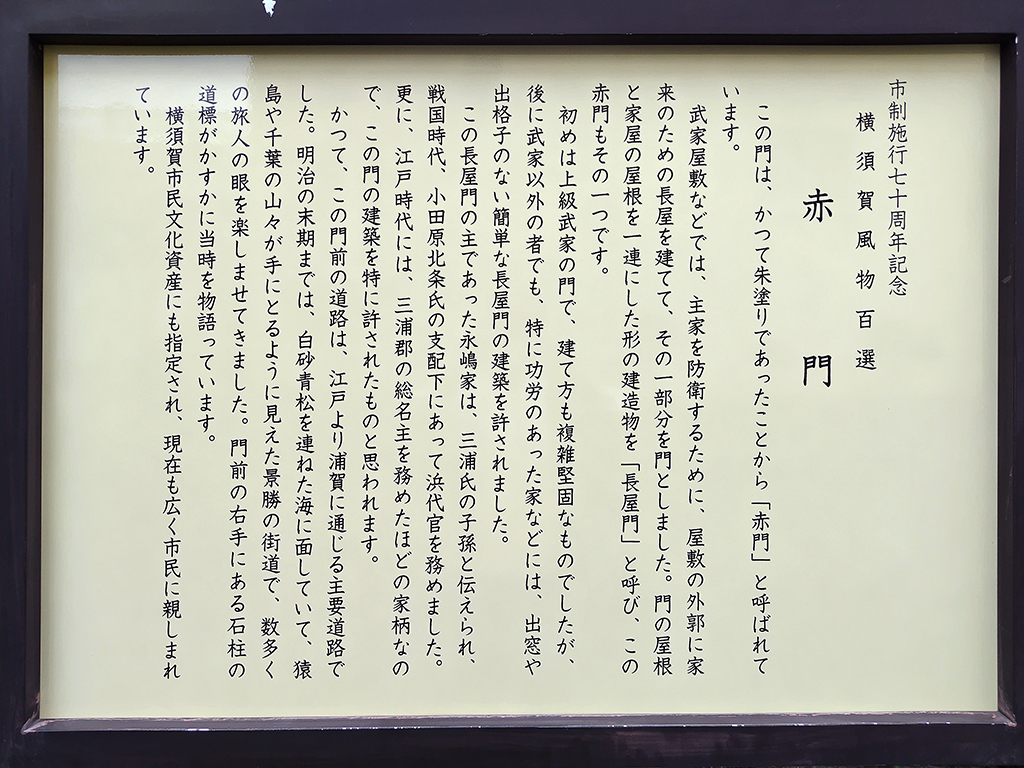 市制施行七十周年記念
横須賀風物百選
赤門
この門は、かつて朱塗りであったことから「赤門」と呼ばれて
います。
武家屋敷などでは、主家を防衛するために、屋敷の外郭に家
来のための長屋を建てて、その一部分を門としました。門の屋根
と家屋の屋根を一連にした形の建造物を「長屋門」と呼び、この
赤門もその一つです。
初めは上級武家の門で、建て方も複雑堅固なものでしたが、
後に武家以外の者でも、特に功労のあった家などには、出窓や
出格子のない簡単な長屋門の建築を許されました。
この長屋門の主であった永嶋家は、三浦氏の子孫と伝えられ、
戦国時代、小田原北条氏の支配下にあって浜代官を務めました。
更に、江戸時代には、三浦郡の総名主を務めたほどの家柄なの
で、この門の建築を特に許されたものと思われます。
かつて、この門前の道路は、江戸より浦賀に通じる主要道路で
した。明治の末期までは、白砂青松を連ねた海に面していて、猿
島や千葉の山々が手にとるように見えた景勝の街道で、数多く
の旅人の眼を楽しませてきました。門前の右手にある石柱の
道標がかすかに当時を物語っています。
横須賀市民文化資産にも指定され、現在も広く市民に親しまれ
ています。